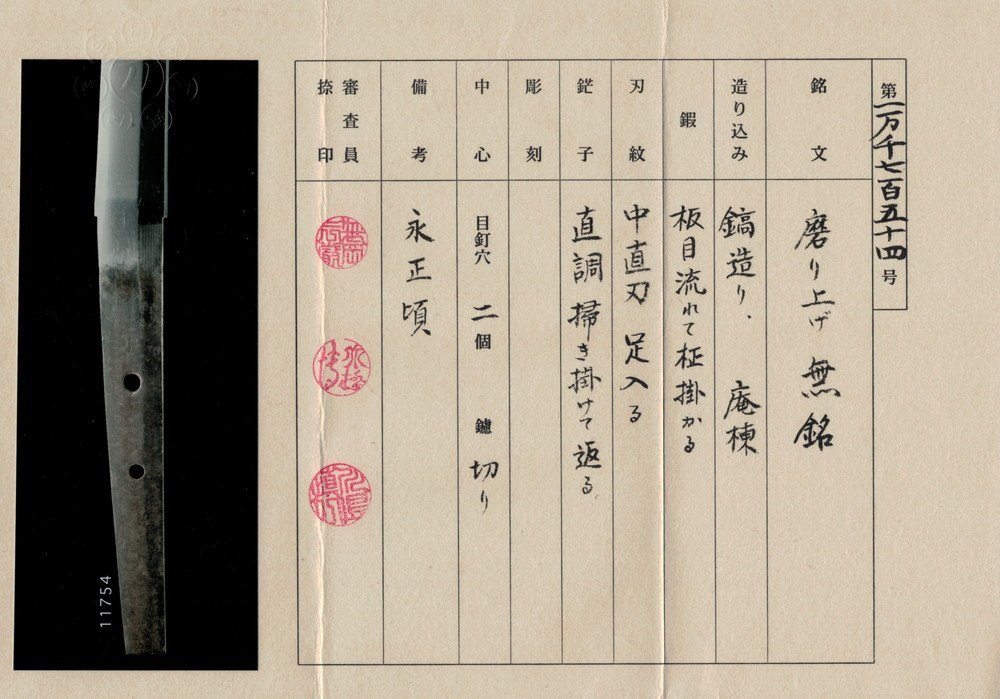 第一万千七百五十四号
銘文
磨り上げ 無銘
造り込み
鎬造り、 庵棟
鍜
板目流れて柾掛かる
刃紋
中直刃 足入る
鋩子
直調 掃き掛けて返る
彫刻
中心
目釘穴 二個 鑢 切り
備考
永正頃
審査員
捺印
11754